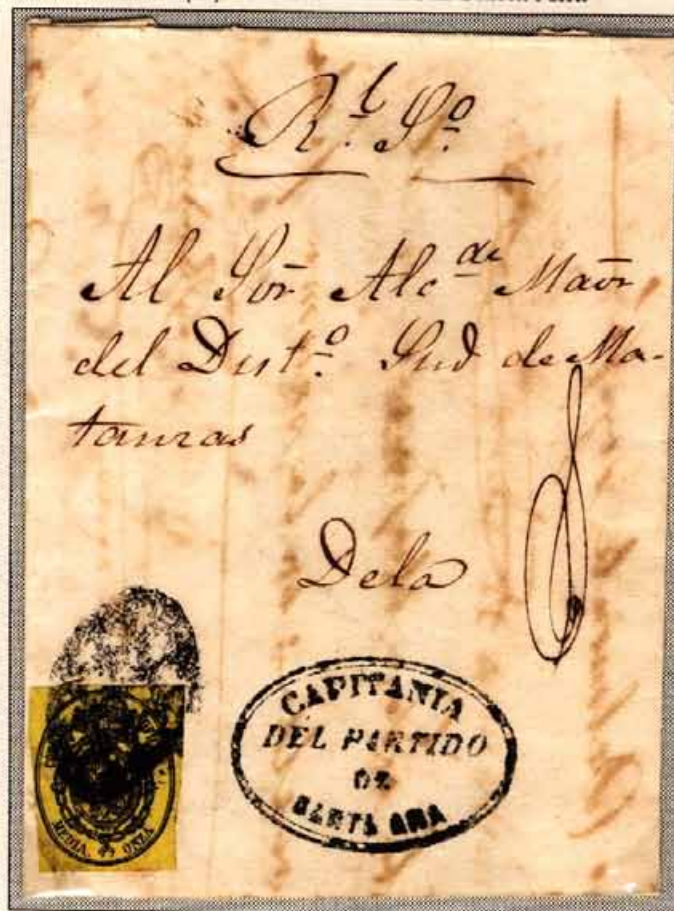 R.l S.o
Al Sor. Alc.de Maor.
del Dist.o Sud de Ma-
tanzas
Dela
CAPITANIA
DEL PARTIDO
DE
SANTA ANA
MEDIA ONZA